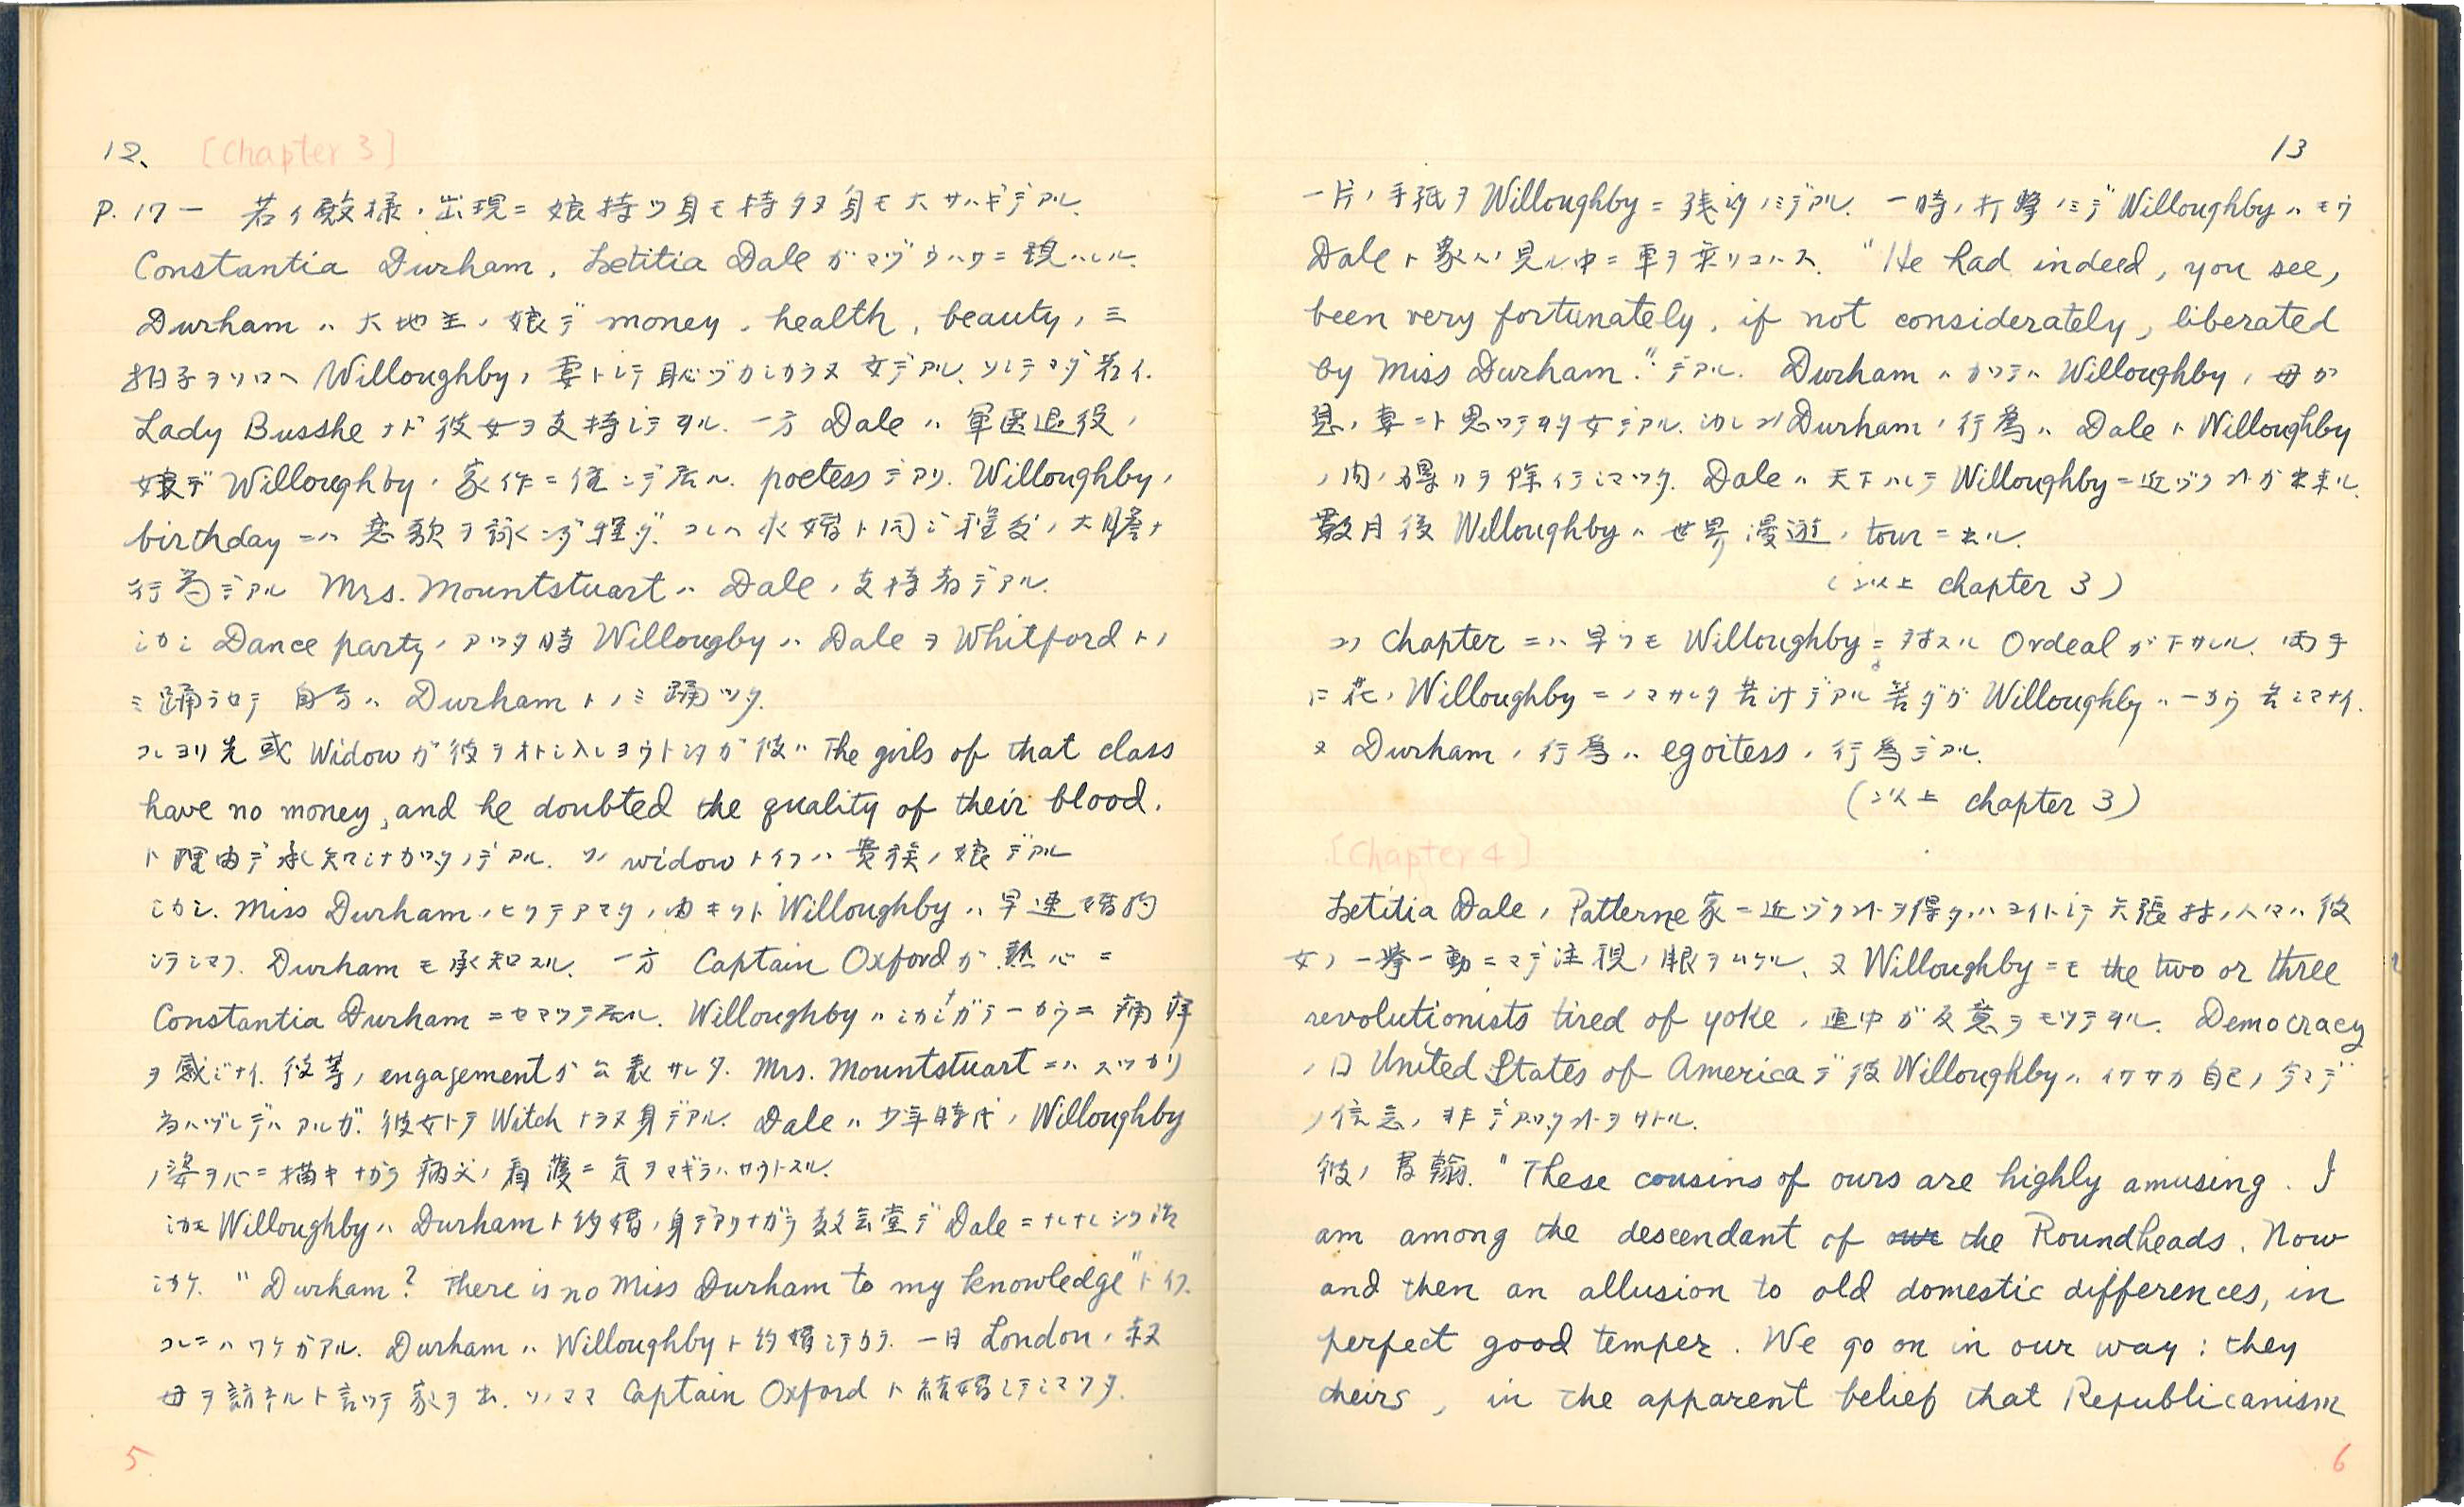 12、 [Chapter 3]
P. 17ー 若イ殿様ノ出現ニ 娘持ツ身モ持タヌ身モ大サハギデアル.
Constantia Durham, Lætitia Dale ガマヅウハサニ現ハレル.
Durham ハ 大地主ノ娘デ money, health, beauty, 三
拍子ヲソロヘ Willoughbyノ妻トシテ恥ヅカシカラヌ女デアル. ソシテマダ若イ.
Lady Busshe ナド彼女ヲ支持シテヰル. 一方 Dale ハ 軍医退役ノ
娘デ Willoughbyノ家作ニ住ンデ居ル. poetess デアリ. Willoughbyノ
birthday ニハ 恋歌ヲ詠ンダ程ダ. コレハ求婚ト同ジ程度ノ大膽ナ
行為デアル Mrs. Mountstuart ハ Daleノ支持者デアル.
シカシ Dance partyノアツタ時 Willougby ハ Dale ヲ Whitford トノ
ミ踊ラセテ 自分ハ Durham トノミ踊ツタ.
コレヨリ先或 Widow ガ彼ヲオトシ入レヨウトシタガ彼ハ The girls of that class
have no money, and he doubted the quality of their blood.
ト理由デ承知シナカツタノデアル. ソノ widow トイフハ貴族ノ娘デアル
シカシ. Miss Durhamノヒクテアマタノ由キクト Willoughby ハ早速婚約
シテシマフ. Durham モ承知スル. 一方 Captain Oxford ガ熱心ニ
Constantia Durham ニセマツテ居ル. Willoughby ハシカシナガラ一カウニ痛痒
ヲ感ジナイ. 彼等ノ engagement ガ公表サレタ. Mrs. Mountstuart ニハスツカリ
当ハヅレデハアルガ. 彼女トテ Witch ナラヌ身デアル. Dale ハ少年時代ノ Willoughby
ノ姿ヲ心ニ描キナガラ病父ノ看護ニ気ヲマギラハサウトスル.
シカモ Willoughby ハ Durham ト約婚ノ身デアリナガラ教会堂デ Dale ニナレナレシク話
シカケ. "Durham? There is no Miss Durham to my knowledge" トイフ.
コレニハワケガアル. Durham ハ Willoughby ト約婚シテカラ. 一日 Londonノ叔
母ヲ訪ネルト言ツテ家ヲ出. ソノママ Captain Oxford ト結婚シテシマツタ.
5
13
一片ノ手紙ヲ Willoughby ニ残シタノミデアル. 一時ノ打撃ノミデ Willoughby ハモウ
Dale ト家人ノ見ル中ニ車ヲ乗リコハス. "He had indeed, you see,
been very fortunately, if not considerately, liberated
by Miss Durham." デアル. Durham ハカツテハ Willoughbyノ母ガ
息ノ妻ニト思ツテヰタ女デアル. シカシコノ Durhamノ行為ハ Dale ト Willoughby
ノ間ノ障リヲ除イテシマツタ. Dale ハ天下ハレテ Willoughby ニ近ヅクコトガ出来ル.
数月後 Willoughby ハ世界漫遊ノ tour ニ出ル.
(以上 chapter 3)
コノ Chapter ニハ早クモ Willoughby ニ対スル Ordeal ガ下サレル. 両手
ニ花ノ Willoughby ニノマサレタ苦汁デアル筈ダガ Willoughby ハ一カウ苦シマナイ.
又 Durhamノ行為ハ egoitessノ行為デアル.
(以上 chapter 3)
[Chapter 4]
Lætitia Daleノ Patterne 家ニ近ヅクコトヲ得タハヨイトシテ矢張村ノ人々ハ彼
女ノ一挙一動ニマデ注視ノ眼ヲムケル. 又 Willoughby ニモ the two or three
revolutionists tired of yokeノ連中ガ反意ヲモツテヰル. Democracy
ノ口 United States of America デ彼 Willoughby ハイササカ自己ノ今マデ
ノ信念ノ非デアツタコトヲサトル.
彼ノ書翰. "These cousins of ours are highly amusing. I
am among the descendant of our the Roundheads. Now
and then an allusion to old domestic differences, in
perfect good temper. We go on in our way: they
theirs, in the apparent belief that Republicanism
6